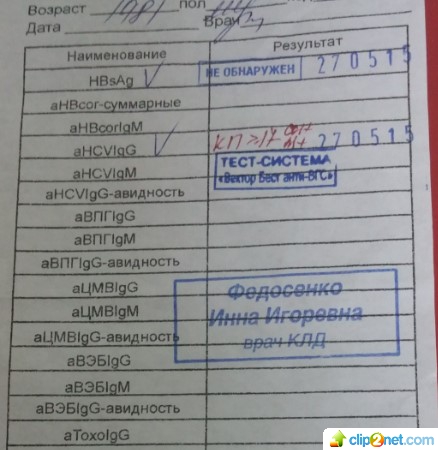 Возраст 1981 пол
Дата Врач
Наименование Результат
HBsAg НЕ ОБНАРУЖЕН 270515
аНВcor-суммарные
аНВcorIgM
аHCVIgG КП≥17 270515
аHCVIgM ТЕСТ-СИСТЕМА
«Вектор Бест анти-ВГС»
аHCVIgG-авидность
аВПГIgG
аВПГIgM
аВПГIgG-авидность
аЦМВIgG Федосенко
аЦМВIgM Инна Игоревна
аЦМВIgG-авидность врач КЛД
аВЭБIgG
аВЭБIgM
аВЭБIgG-авидность
аТохоIgG
clip2net.com